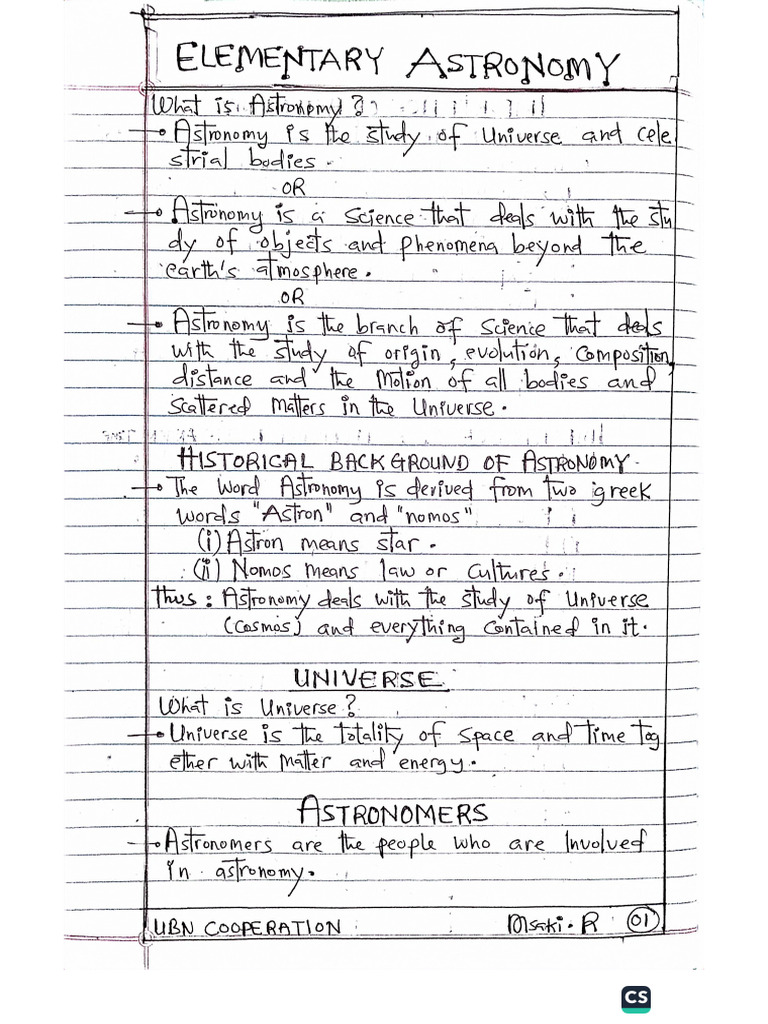 ELEMENTARY ASTRONOMY
What is Astronomy?
Astronomy is the study of Universe and cele
strial bodies.
OR
Astronomy is a science that deals with the stu
dy of objects and phenomena beyond the
earth's atmosphere.
OR
Astronomy is the branch of science that deals
with the study of origin, evolution, composition,
distance and the motion of all bodies and
scattered matters in the Universe.
HISTORICAL BACKGROUND OF ASTRONOMY.
The word Astronomy is derived from two greek
words "Astron" and "nomos"
(i) Astron means star.
(ii) Nomos means law or cultures.
Thus: Astronomy deals with the study of Universe
(cosmos) and everything contained in it.
UNIVERSE.
What is Universe?
Universe is the totality of space and time tog
ether with matter and energy.
ASTRONOMERS
Astronomers are the people who are involved
in astronomy.
UBN COOPERATION Msaki. R 01
CS